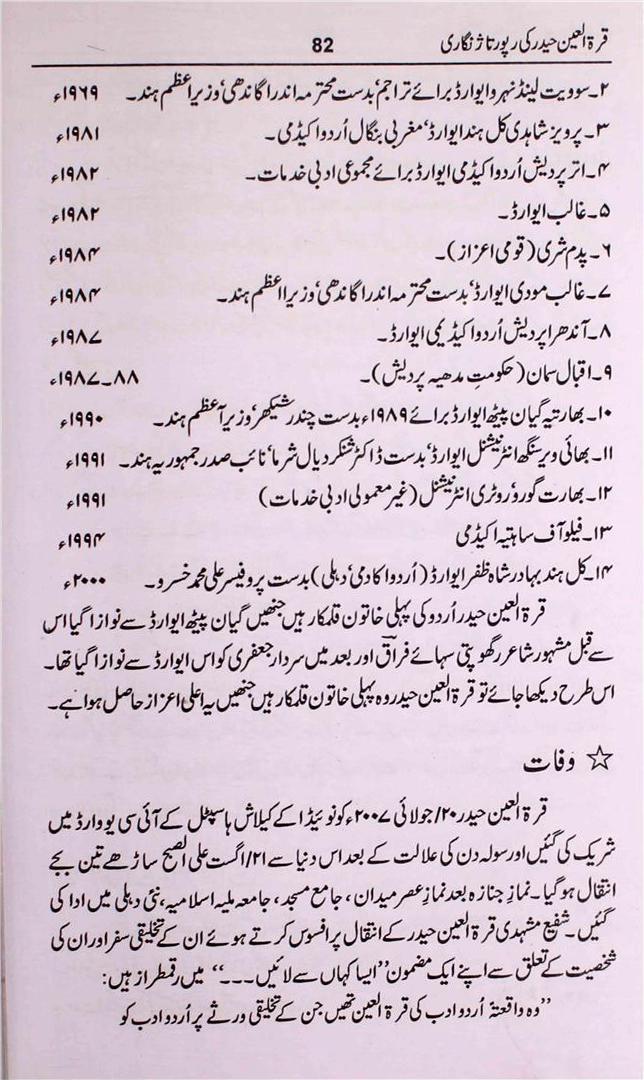 قرۃ العین حیدر کی رپورتاژ نگاری 82
۲۔ سوویت لینڈ نہرو ایوارڈ برائے تراجم، بدست محترمہ اندرا گاندھی، وزیر اعظم ہند۔ ۱۹۶۹ء
۳۔ پرویز شاہدی کل ہند ایوارڈ، مغربی بنگال اُردو اکیڈمی۔ ۱۹۸۱ء
۴۔ اتر پردیش اُردو اکیڈمی ایوارڈ برائے مجموعی ادبی خدمات۔ ۱۹۸۲ء
۵۔ غالب ایوارڈ۔ ۱۹۸۲ء
۶۔ پدم شری (قومی اعزاز)۔ ۱۹۸۴ء
۷۔ غالب مودی ایوارڈ، بدست محترمہ اندرا گاندھی، وزیرا اعظم ہند۔ ۱۹۸۴ء
۸۔ آندھرا پردیش اُردو اکیڈیمی ایوارڈ۔ ۱۹۸۷ء
۹۔ اقبال سمان (حکومت مدھیہ پردیش)۔ ۸۸۔۱۹۸۷ء
۱۰۔ بھارتیہ گیان پیٹھ ایوارڈ برائے ۱۹۸۹ء بدست چندر شیکھر، وزیر آعظم ہند۔ ۱۹۹۰ء
۱۱۔ بھائی ویر سنگھ انٹرنیشنل ایوارڈ، بدست ڈاکٹر شنکر دیال شرما، نائب صدر جمہوریہ ہند۔ ۱۹۹۱ء
۱۲۔ بھارت گورو، روٹری انٹرنیشنل (غیر معمولی ادبی خدمات) ۱۹۹۱ء
۱۳۔ فیلو آف ساہتیہ اکیڈمی ۱۹۹۴ء
۱۴۔ کل ہند بہادر شاہ ظفر ایوارڈ (اُردو اکادمی، دہلی) بدست پروفیسر علی محمد خسرو۔ ۲۰۰۰ء
قرۃ العین حیدر اُردو کی پہلی خاتون قلمکار ہیں جنھیں گیان پیٹھ ایوارڈ سے نوازا گیا اس
سے قبل مشہور شاعر رگھوپتی سہائے فراقؔ اور بعد میں سردار جعفری کو اس ایوارڈ سے نوازا گیا تھا۔
اس طرح دیکھا جائے تو قرۃ العین حیدر وہ پہلی خاتون قلمکار ہیں جنھیں یہ اعلی اعزاز حاصل ہوا ہے۔
☆ وفات
قرۃ العین حیدر ۲۰/ جولائی ۲۰۰۷ء کو نوئیڈا کے کیلاش ہاسپٹل کے آئی سی یو وارڈ میں
شریک کی گئیں اور سولہ دن کی علالت کے بعد اس دنیا سے ۲۱/ اگست علی الصبح ساڑھے تین بجے
انتقال ہو گیا۔ نمازِ جنازہ بعد نمازِ عصر میدان، جامع مسجد، جامعہ ملیہ اسلامیہ، نئی دہلی میں ادا کی
گئیں۔ شفیع مشہدی قرۃ العین حیدر کے انتقال پر افسوس کرتے ہوئے ان کے تخلیقی سفر اور ان کی
شخصیت کے تعلق سے اپنے ایک مضمون ”ایسا کہاں سے لائیں۔۔۔“ میں رقمطراز ہیں:
”وہ واقعتۂ اُردو ادب کی قرۃ العین تھیں جن کے تخلیقی ورثے پر اُردو ادب کو